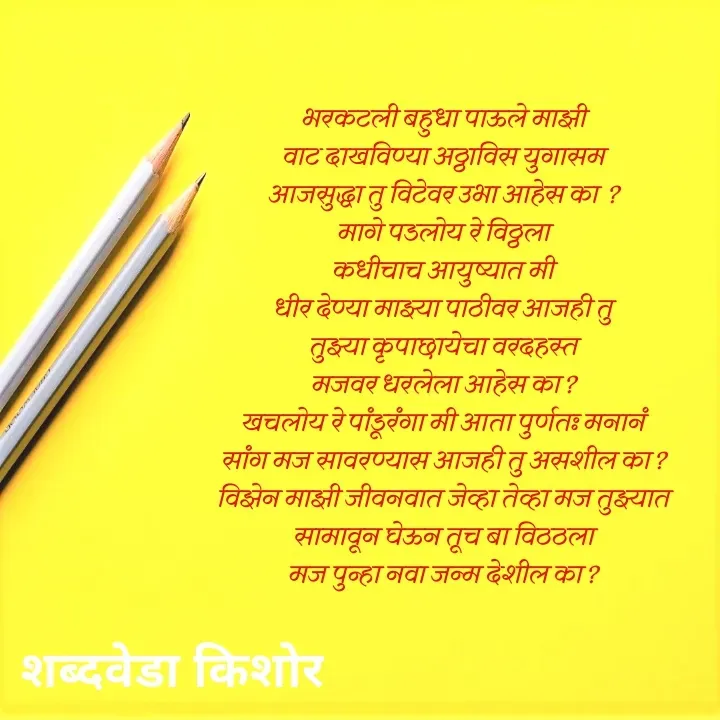 भरकटली बहुधा पाऊले माझी
वाट दाखविण्या अठ्ठाविस युगासम
आजसुद्धा तु विटेवर उभा आहेस का ?
मागे पडलोय रे विठ्ठला
कधीचाच आयुष्यात मी
धीर देण्या माझ्या पाठीवर आजही तु
तुझ्या कृपाछायेचा वरदहस्त
मजवर धरलेला आहेस का ?
खचलोय रे पांडूरंगा मी आता पुर्णतः मनानं
सांग मज सावरण्यास आजही तु असशील का ?
विझेन माझी जीवनवात जेव्हा तेव्हा मज तुझ्यात
सामावून घेऊन तूच बा विठठला
मज पुन्हा नवा जन्म देशील का ?
शब्दवेडा किशोर